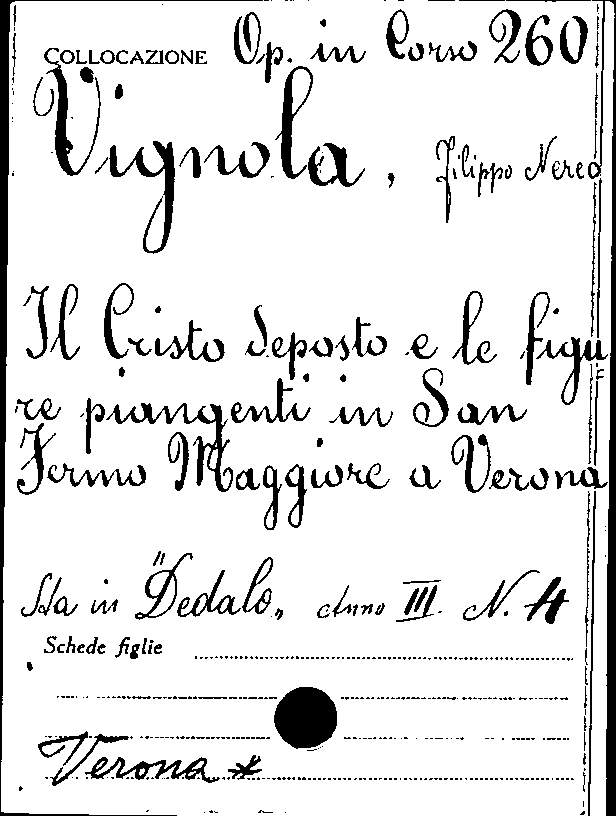 COLLOCAZIONE Op. in Corso 260
Vignola, Filippo Nereo
Il Cristo deposto e le figu
re piangenti in San
Fermo Maggiore a Verona
Sta in "Dedalo„ Anno III. N. 4
Schede figlie
Verona *